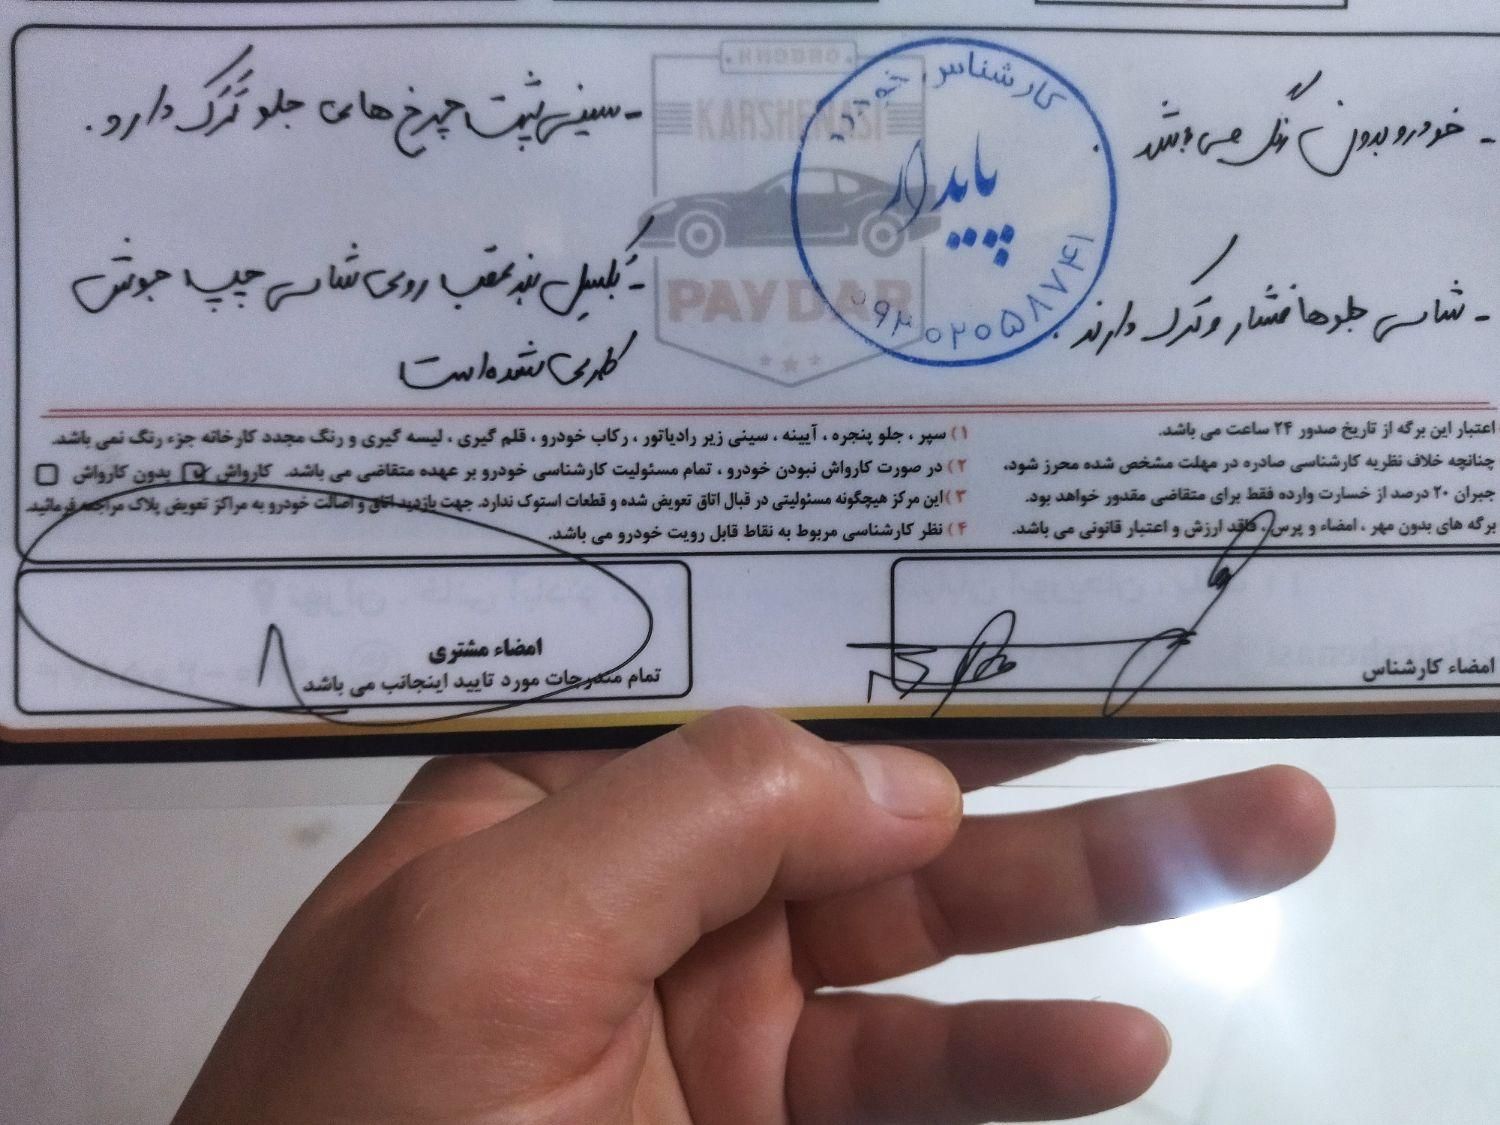 - خودرو بدون رنگ می باشد
- شاسی جلوها فشار و ترک دارند.
- سینی پشت چرخ های جلو ترک دارد.
- گلسیل بند عقب روی شاسی چپ جوش
کاری شده است
کارشناسی خودرو
پایدار
۰۹۲۰۲۰۵۸۷۴۱
KARSHENASI
PAYDAR
اعتبار این برگه از تاریخ صدور ۲۴ ساعت می باشد.
چنانچه خلاف نظریه کارشناسی صادره در مهلت مشخص شده محرز شود،
جبران ۲۰ درصد از خسارت وارده فقط برای متقاضی مقدور خواهد بود.
برگه های بدون مهر ، امضاء و پرس ، فاقد ارزش و اعتبار قانونی می باشد.
۱) سپر ، جلو پنجره ، آیینه ، سینی زیر رادیاتور ، رکاب خودرو ، قلم گیری ، لیسه گیری و رنگ مجدد کارخانه جزء رنگ نمی باشد.
۲) در صورت کارواش نبودن خودرو ، تمام مسئولیت کارشناسی خودرو بر عهده متقاضی می باشد. کارواش بدون کارواش
۳) این مرکز هیچگونه مسئولیتی در قبال اتاق تعویض شده و قطعات استوک ندارد. جهت بازدید اتاق و اصالت خودرو به مراکز تعویض پلاک مراجعه فرمائید.
۴) نظر کارشناسی مربوط به نقاط قابل رویت خودرو می باشد.
امضاء کارشناس
امضاء مشتری
تمام مندرجات مورد تایید اینجانب می باشد